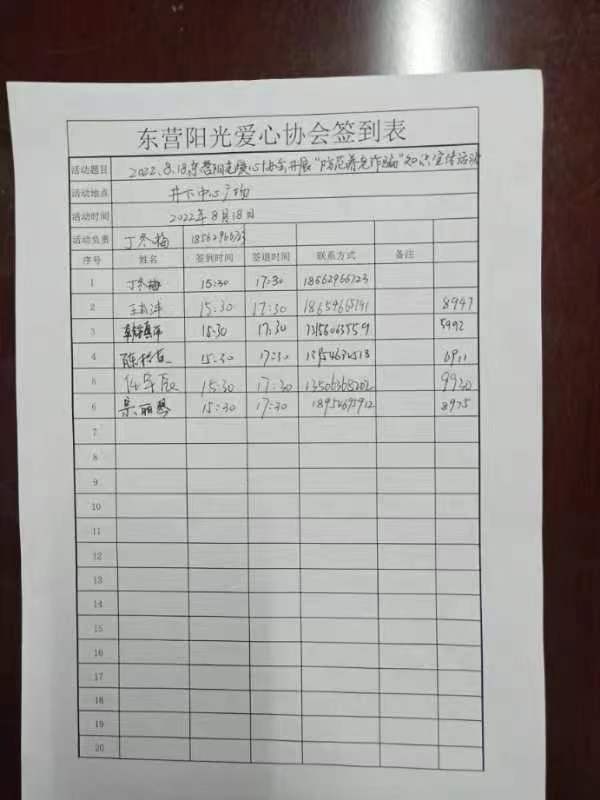 东营阳光爱心协会签到表
活动题目 2022.8.18东营阳光爱心协会开展"防范养老诈骗"知识宣传活动
活动地点 井下中心广场
活动时间 2022年8月18日
活动负责 丁冬梅
序号 姓名 签到时间 签退时间 联系方式 备注
1 丁冬梅 15:30 17:30 18562966723
2 15:30 17:30 8947
3 15:30 17:30 5992
4 15:30 17:30
5 15:30 17:30 13506365202 9920
6 15:30 17:30 18954695912 8975
7
8
9
10
11
12
13
14
15
16
17
18
19
20